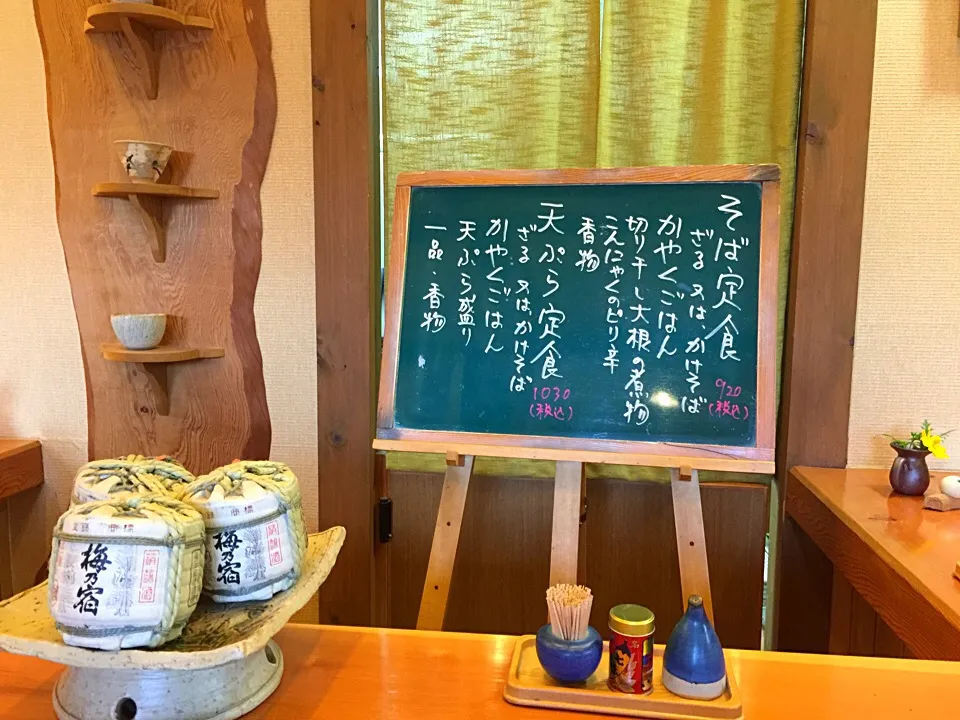 そば定食
920
(税込)
ざる 又は、かけそば
かやくごはん
切り干し大根の煮物
こんにゃくのピリ辛
香物
天ぷら定食
1030
(税込)
ざる 又は、かけそば
かやくごはん
天ぷら盛り
一品・香物
梅乃宿
清酒
梅乃宿
清酒